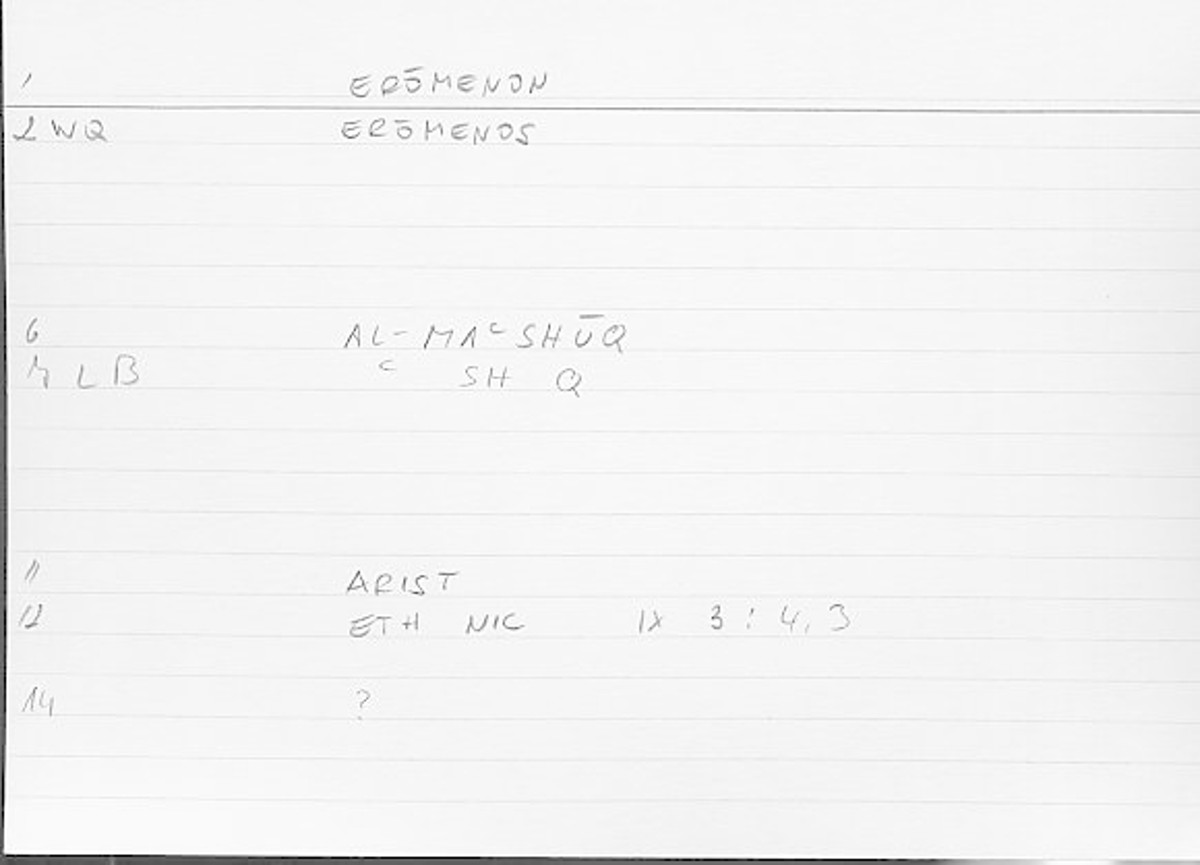 1 ERŌMENON
2 WQ ERŌMENOS
6 AL-MAᶜSHŪQ
LB ᶜ SH Q
11 ARIST
12 ETH NIC IX 3 : 4,3
14 ?